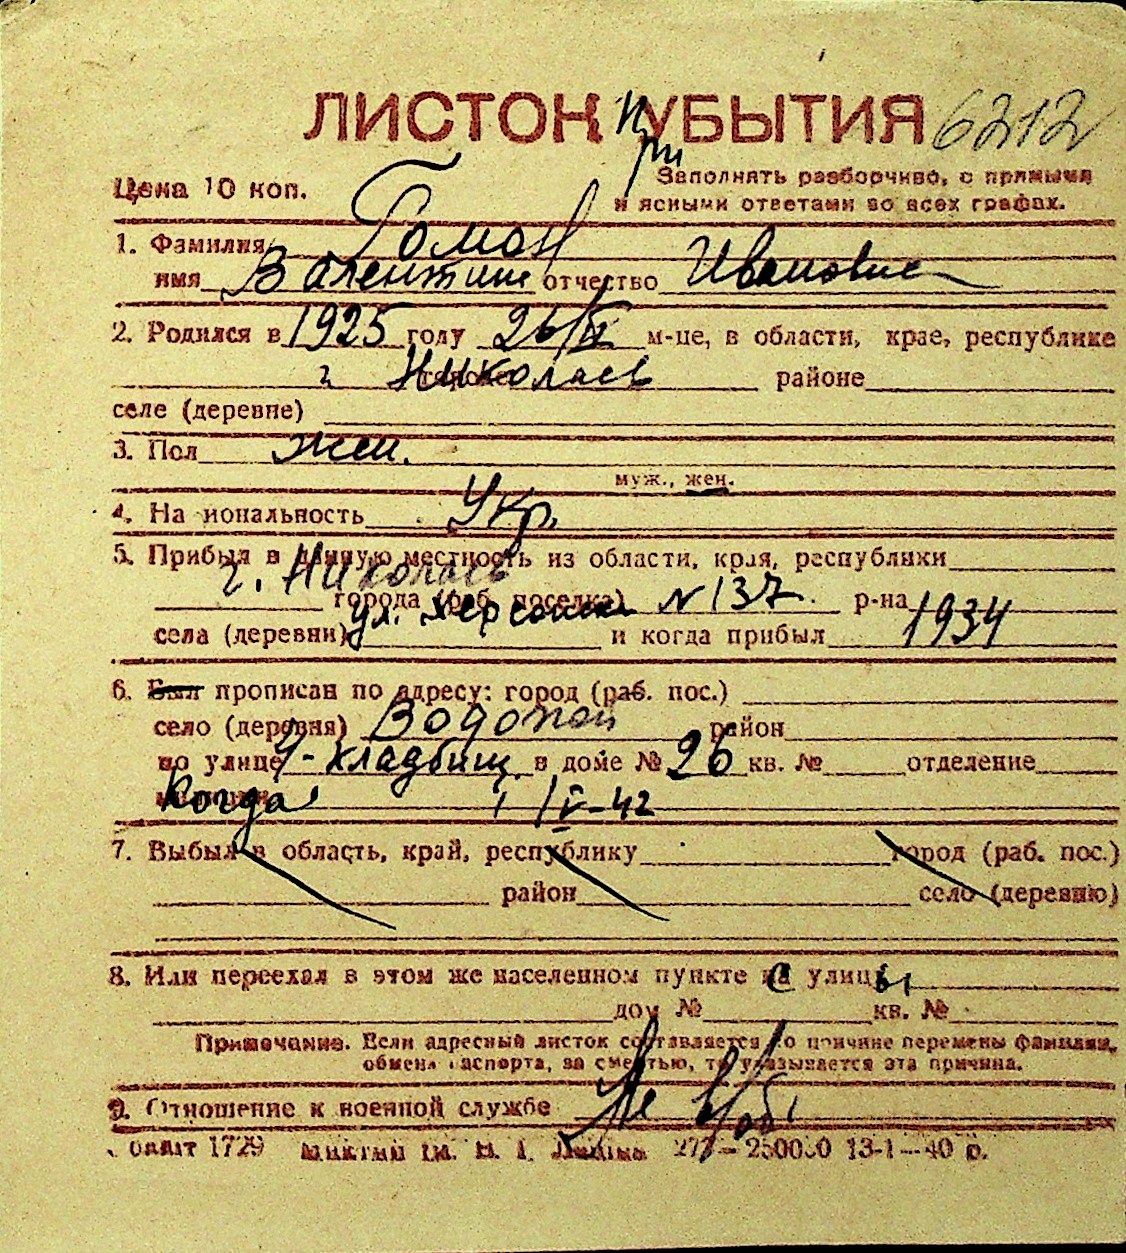 ЛИСТОК При УБЫТИЯ 6212
Цена 10 коп. Заполнять разборчиво, с прямыми
и ясными ответами во всех графах.
1. Фамилия Гоман
имя Валентина отчество Ивановна
2. Родился в 1925 году 26/II м-це, в области, крае, республике
г. Николаев районе
селе (деревне)
3. Пол жен.
муж., жен.
4. На иональность Укр.
5. Прибыл в данную местность из области, края, республики
г. Николаев
города (раб. поселка) № 137 р-на
ул. Херсонск
села (деревни) и когда прибыл 1934
6. Был прописан по адресу: город (раб. пос.)
село (деревня) Водопой район
по улице 4-кладбищ в доме № 26 кв. № отделение
Когда 1/V-42
7. Выбыл в область, край, республику город (раб. пос.)
район село (деревню)
8. Или переехал в этом же населенном пункте с улицы
дом № кв. №
Примечание. Если адресный листок составляется по причине перемены фамилии,
обмена паспорта, за смертью, то указывается эта причина.
9. Отношение к военной службе Не в/об
1729 им. 250000 13-1-40 р.